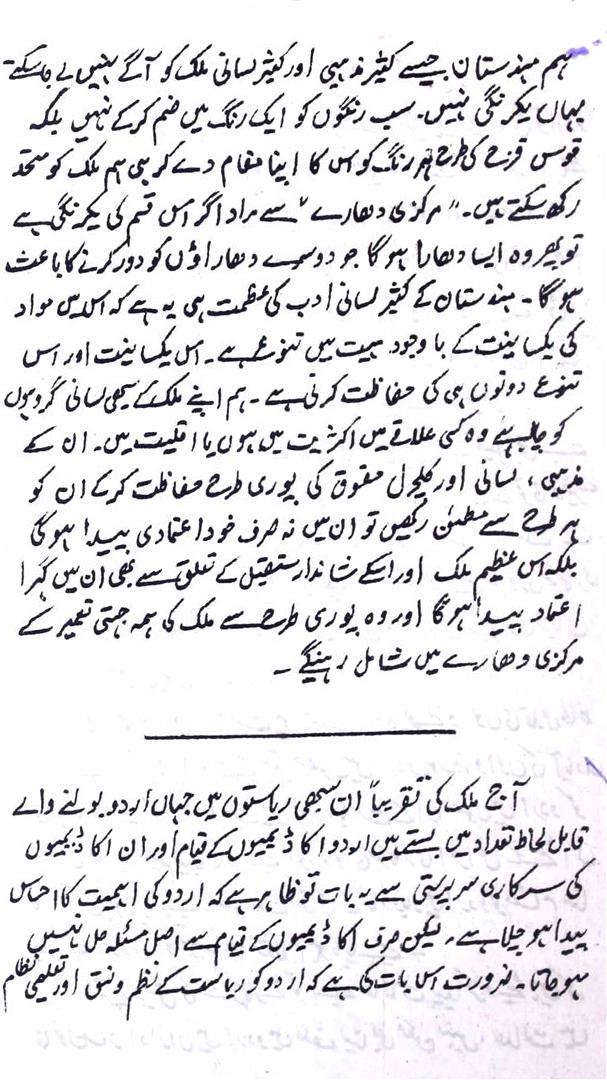 ہم ہندستان جیسے کثیر مذہبی اور کثیر لسانی ملک کو آگے نہیں لے جا سکتے
یہاں یکرنگی نہیں۔ سب رنگوں کو ایک رنگ میں ضم کر کے نہیں بلکہ
قوس قزح کی طرح ہر رنگ کو اس کا اپنا مقام دے کر ہی ہم ملک کو متحد
رکھ سکتے ہیں۔ "مرکزی دھارے" سے مراد اگر اس قسم کی یکرنگی ہے
تو پھر وہ ایسا دھارا ہو گا جو دوسرے دھاراؤں کو دور کرنے کا باعث
ہو گا۔ ہندستان کے کثیر لسانی ادب کی عظمت ہی یہ ہے کہ اس میں مواد
کی یکسانیت کے با وجود ہیت میں تنوع ہے۔ اس یکسانیت اور اس
تنوع دونوں ہی کی حفاظت کرنی ہے۔ ہم اپنے ملک کے سبھی لسانی گروہوں
کو چاہیے وہ کسی علاقے میں اکثریت میں ہوں یا اقلیت میں۔ ان کے
مذہبی، لسانی اور کلچرل حقوق کی پوری طرح حفاظت کر کے ان کو
ہر طرح سے مطمئن رکھیں تو ان میں نہ صرف خود اعتمادی پیدا ہو گی
بلکہ اس عظیم ملک اور اسکے شاندار مستقبل کے تعلق سے بھی ان میں گہرا
اعتماد پیدا ہو گا اور وہ پوری طرح سے ملک کی ہمہ جہتی تعمیر کے
مرکزی دھارے میں شامل رہینگے۔
آج ملک کی تقریباً ان سبھی ریاستوں میں جہاں اردو بولنے والے
قابل لحاظ تعداد میں بستے ہیں اردو اکاڈیمیوں کے قیام اور ان اکاڈیمیوں
کی سرکاری سرپرستی سے یہ بات تو ظاہر ہے کہ اردو کی اہمیت کا احساس
پیدا ہو چلا ہے، لیکن صرف اکاڈیمیوں کے قیام سے اصل مسئلہ حل نہیں
ہو جاتا۔ ضرورت اس بات کی ہے کہ اردو کو ریاست کے نظم و نسق اور تعلیمی نظام